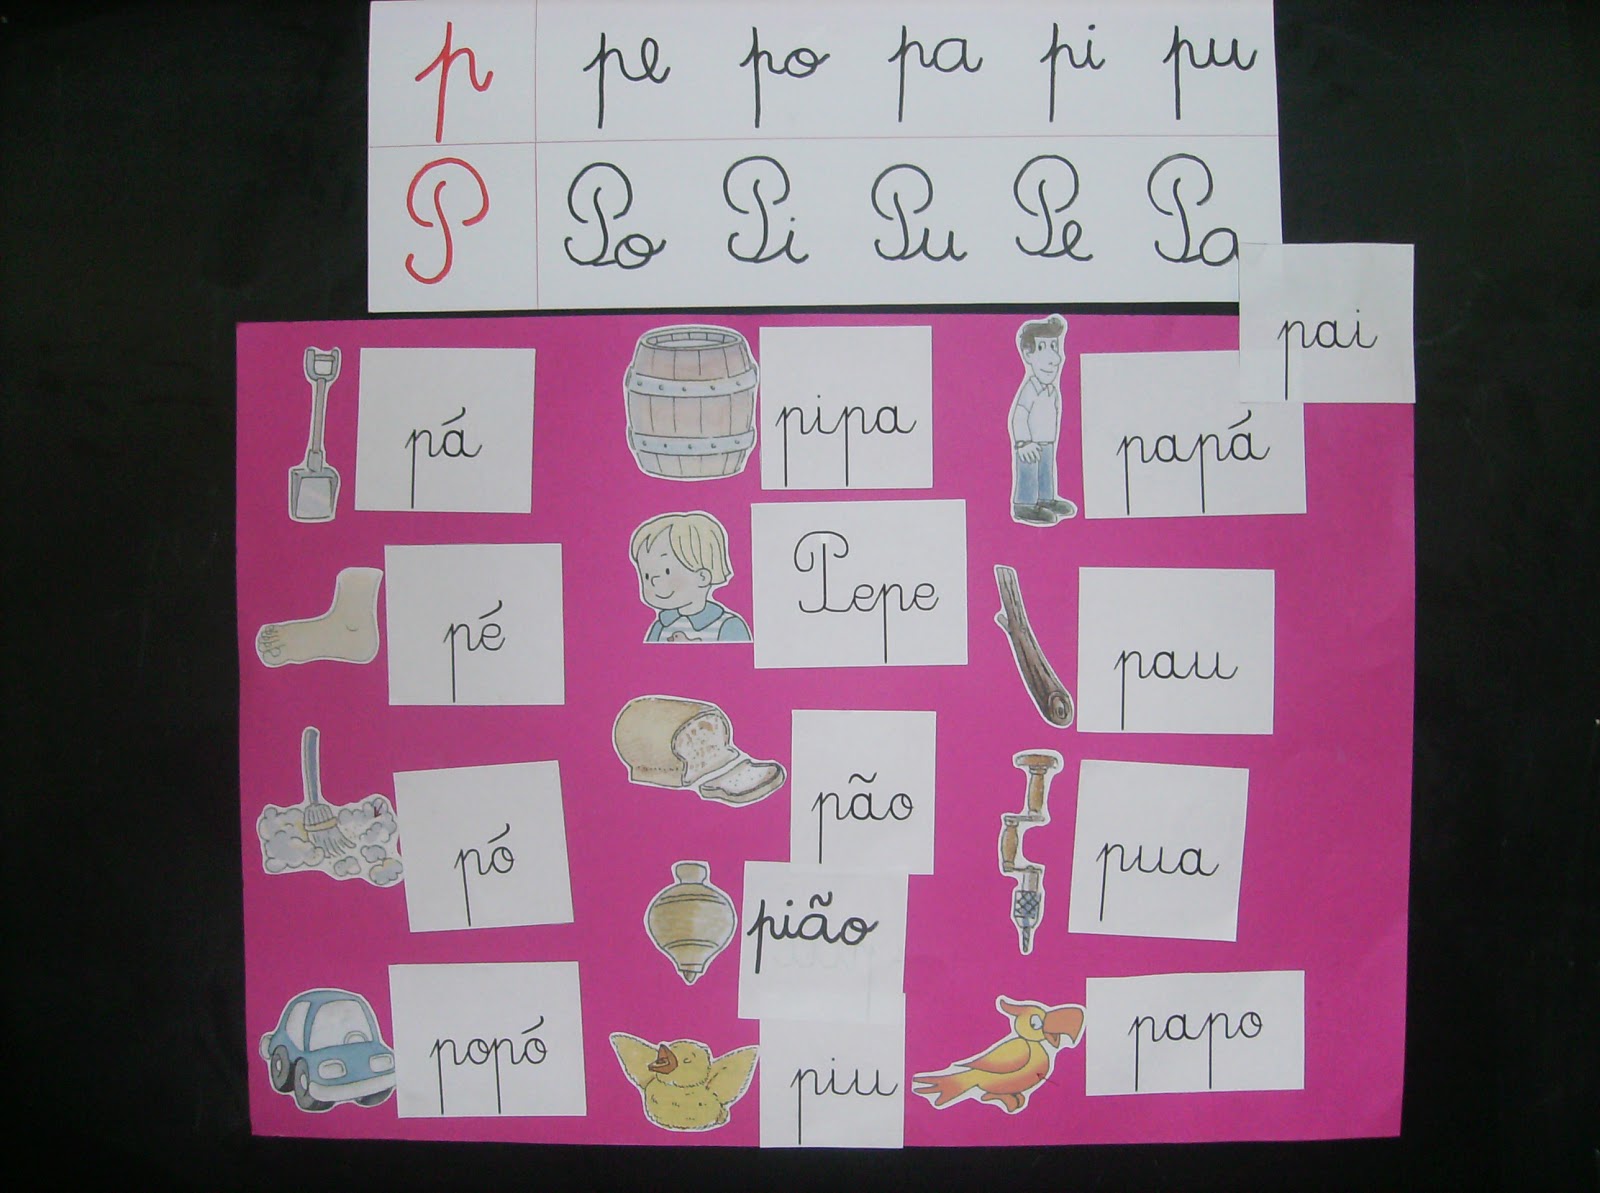 p pe po pa pi pu
P Po Pi Pu Pe Pa
pai
pá
pipa
papá
pé
Pepe
pau
pó
pão
pua
pião
popó
piu
papo